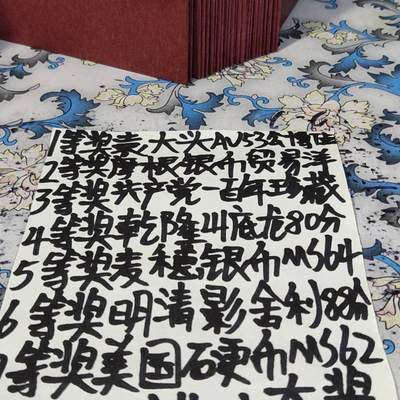 1等奖袁大头AU53公博
2等奖摩根银币贸易洋
3等奖共产党一百年珍藏
4等奖乾隆山底龙80分
5等奖麦穗银币MS64
6等奖明清影舍利88分
等奖美国硬币MS62